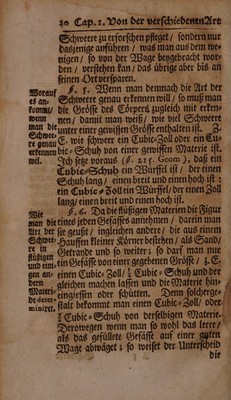 20 Cap. 1. Von der verschiedenen Art
Schweere zu erforschen pfleget / sondern nur
dasjenige anführen / was man aus dem we-
nigen / so von der Wage beygebracht wor-
den / verstehen kan / das übrige aber bis an
seinen Ort versparen.
Worauf es an-
kommt / wenn
man die Schwee-
re genau erkennen
wil.
§. 5. Wenn man demnach die Art der
Schweere genau erkennen will / so muß man
die Grösse des Cörpers zugleich mit erken-
nen / damit man weiß / wie viel Schweere
unter einer gewissen Grösse enthalten ist. Z.
E. wie schweer ein Cubic-Zoll oder ein Cu-
bic-Schuh von einer gewissen Materie ist.
Ich setze voraus (§. 215. Geom), daß ein
Cubic-Schuh ein Würffel ist / der einen
Schuh lang / einen breit und einen hoch ist:
ein Cubic-Zoll ein Würffel / der einen Zoll
lang / einen breit und einen hoch ist.
Wie man die Art der
Schwee-
re in flüßigen
und eini-
gen an-
dern Materi-
en deter-
miniret.
§. 6. Da die flüßigen Materien die Figur
eines jeden Gefässes annehmen / darein man
sie geußt / ingleichen andere / die aus einem
Hauffen kleiner Körner bestehen / als Sand /
Getrayde und so weiter; so darf man nur
ein Gefässe von einer gegebenen Grösse / z. E.
einen Cubic-Zoll / Cubic-Schuh und der
gleichen machen lassen und die Materie hin-
eingiessen oder schütten. Denn solcherge-
stalt bekommt man einen Cubic-Zoll / oder
Cubic-Schuh von derselbigen Materie.
Derowegen wenn man so wohl das leere /
als das gefüllete Gefässe auf einer guten
Wage abwäget; so weiset der Unterscheid
die